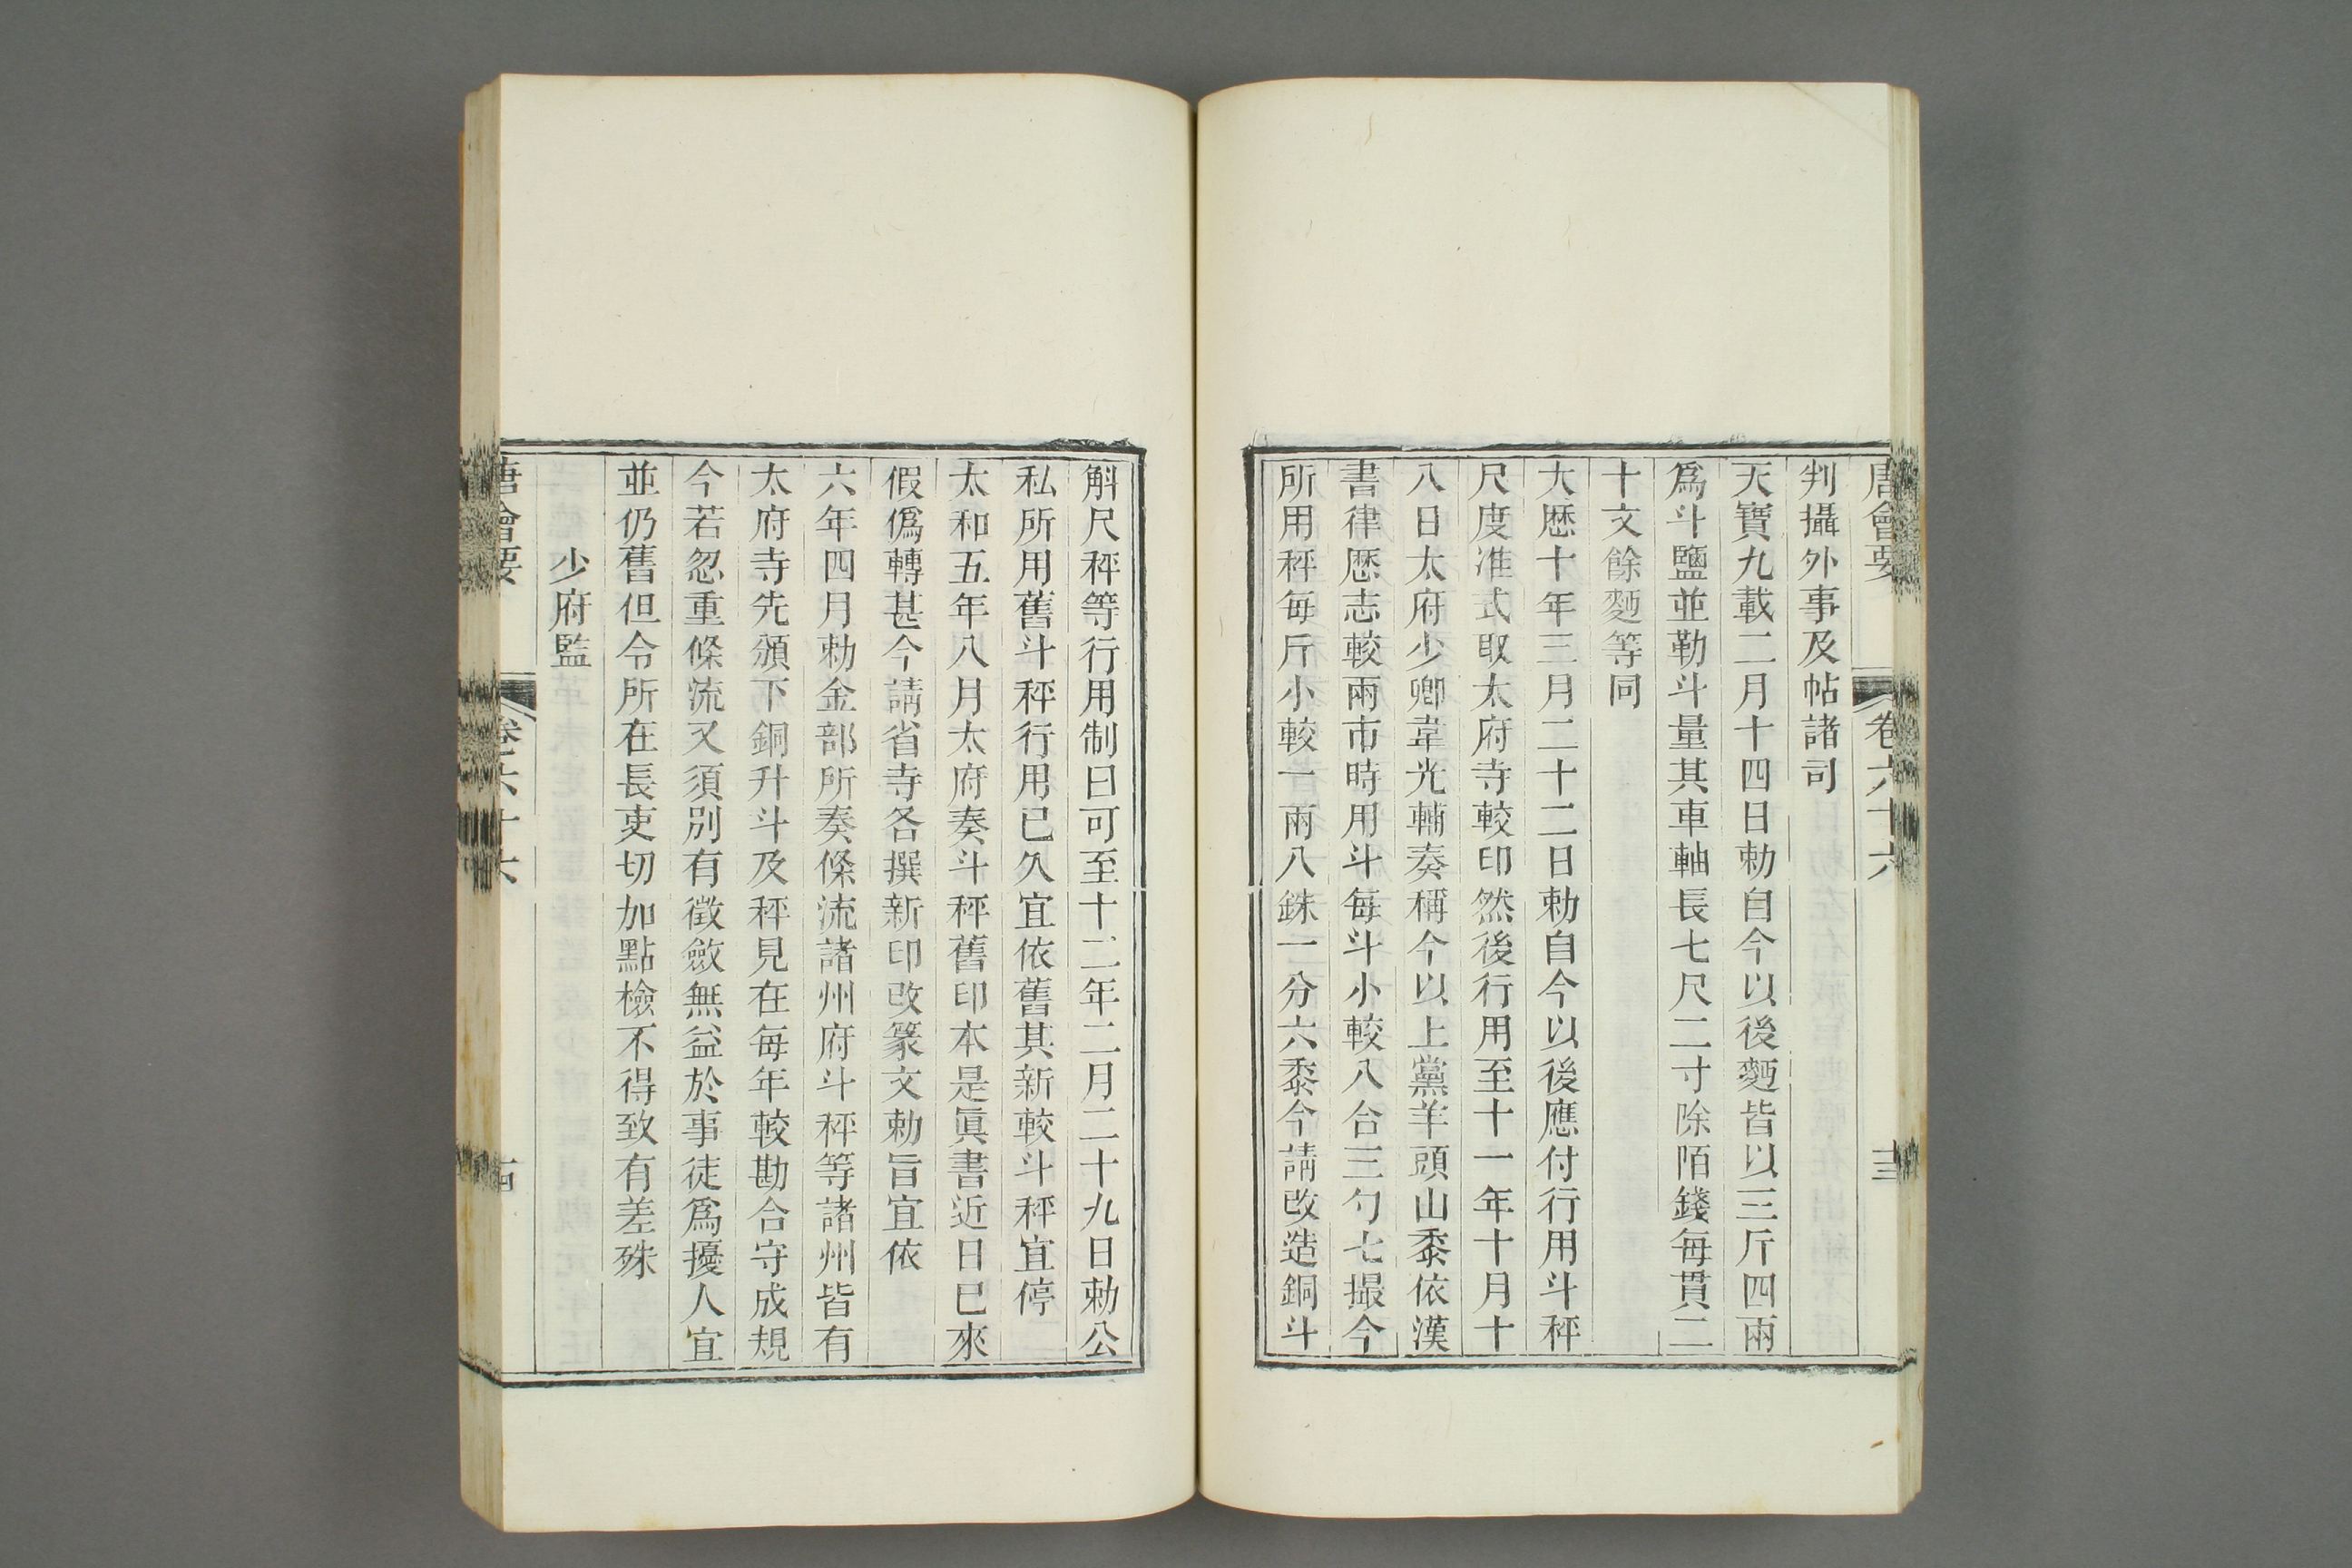 唐會要 卷六十六 十三
判攝外事及帖諸司
天寶九載二月十四日勅自今以後麪皆以三斤四兩
爲斗鹽並勒斗量其車軸長七尺二寸除陌錢每貫二
十文餘麪等同
大歷十年三月二十二日勅自今以後應付行用斗秤
尺度准式取太府寺較印然後行用至十一年十月十
八日太府少卿韋光輔奏稱今以上黨羊頭山黍依漢
書律歷志較兩市時用斗每斗小較八合三勺七撮今
所用秤每斤小較一兩八銖一分六黍今請改造銅斗
斛尺秤等行用制曰可至十二年二月二十九日勅公
私所用舊斗秤行用已久宜依舊其新較斗秤宜停
太和五年八月太府奏斗秤舊印本是眞書近日已來
假僞轉甚今請省寺各撰新印改篆文勅旨宜依
六年四月勅金部所奏條流諸州府斗秤等諸州皆有
太府寺先頒下銅升斗及秤見在每年較勘合守成規
今若忽重條流又須別有徵斂無益於事徒爲擾人宜
並仍舊但令所在長吏切加點檢不得致有差殊
少府監
唐會要 卷六十六 十四